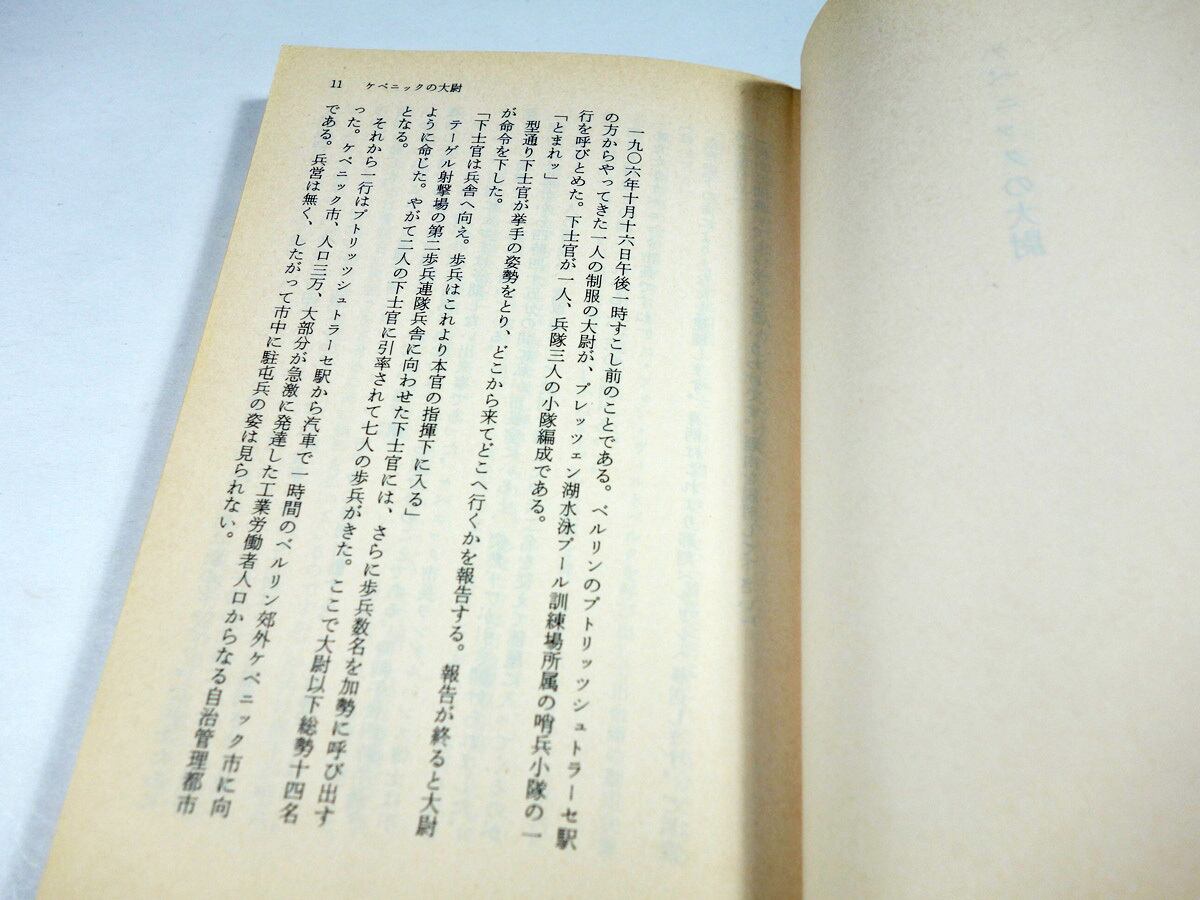 11 ケペニックの大尉
一九〇六年十月十六日午後一時すこし前のことである。ベルリンのプトリッツシュトラーセ駅
の方からやってきた一人の制服の大尉が、プレッツェン湖水泳プール訓練場所属の哨兵小隊の一
行を呼びとめた。下士官が一人、兵隊三人の小隊編成である。
「とまれッ」
型通り下士官が挙手の姿勢をとり、どこから来てどこへ行くかを報告する。報告が終ると大尉
が命令を下した。
「下士官は兵舎へ向え。歩兵はこれより本官の指揮下に入る」
テーゲル射撃場の第二歩兵連隊兵舎に向わせた下士官には、さらに歩兵数名を加勢に呼び出す
ように命じた。やがて二人の下士官に引率されて七人の歩兵がきた。ここで大尉以下総勢十四名
となる。
それから一行はプトリッツシュトラーセ駅から汽車で一時間のベルリン郊外ケペニック市に向
った。ケペニック市、人口三万、大部分が急激に発達した工業労働者人口からなる自治管理都市
である。兵営は無く、したがって市中に駐屯兵の姿は見られない。
ケペニックの大尉